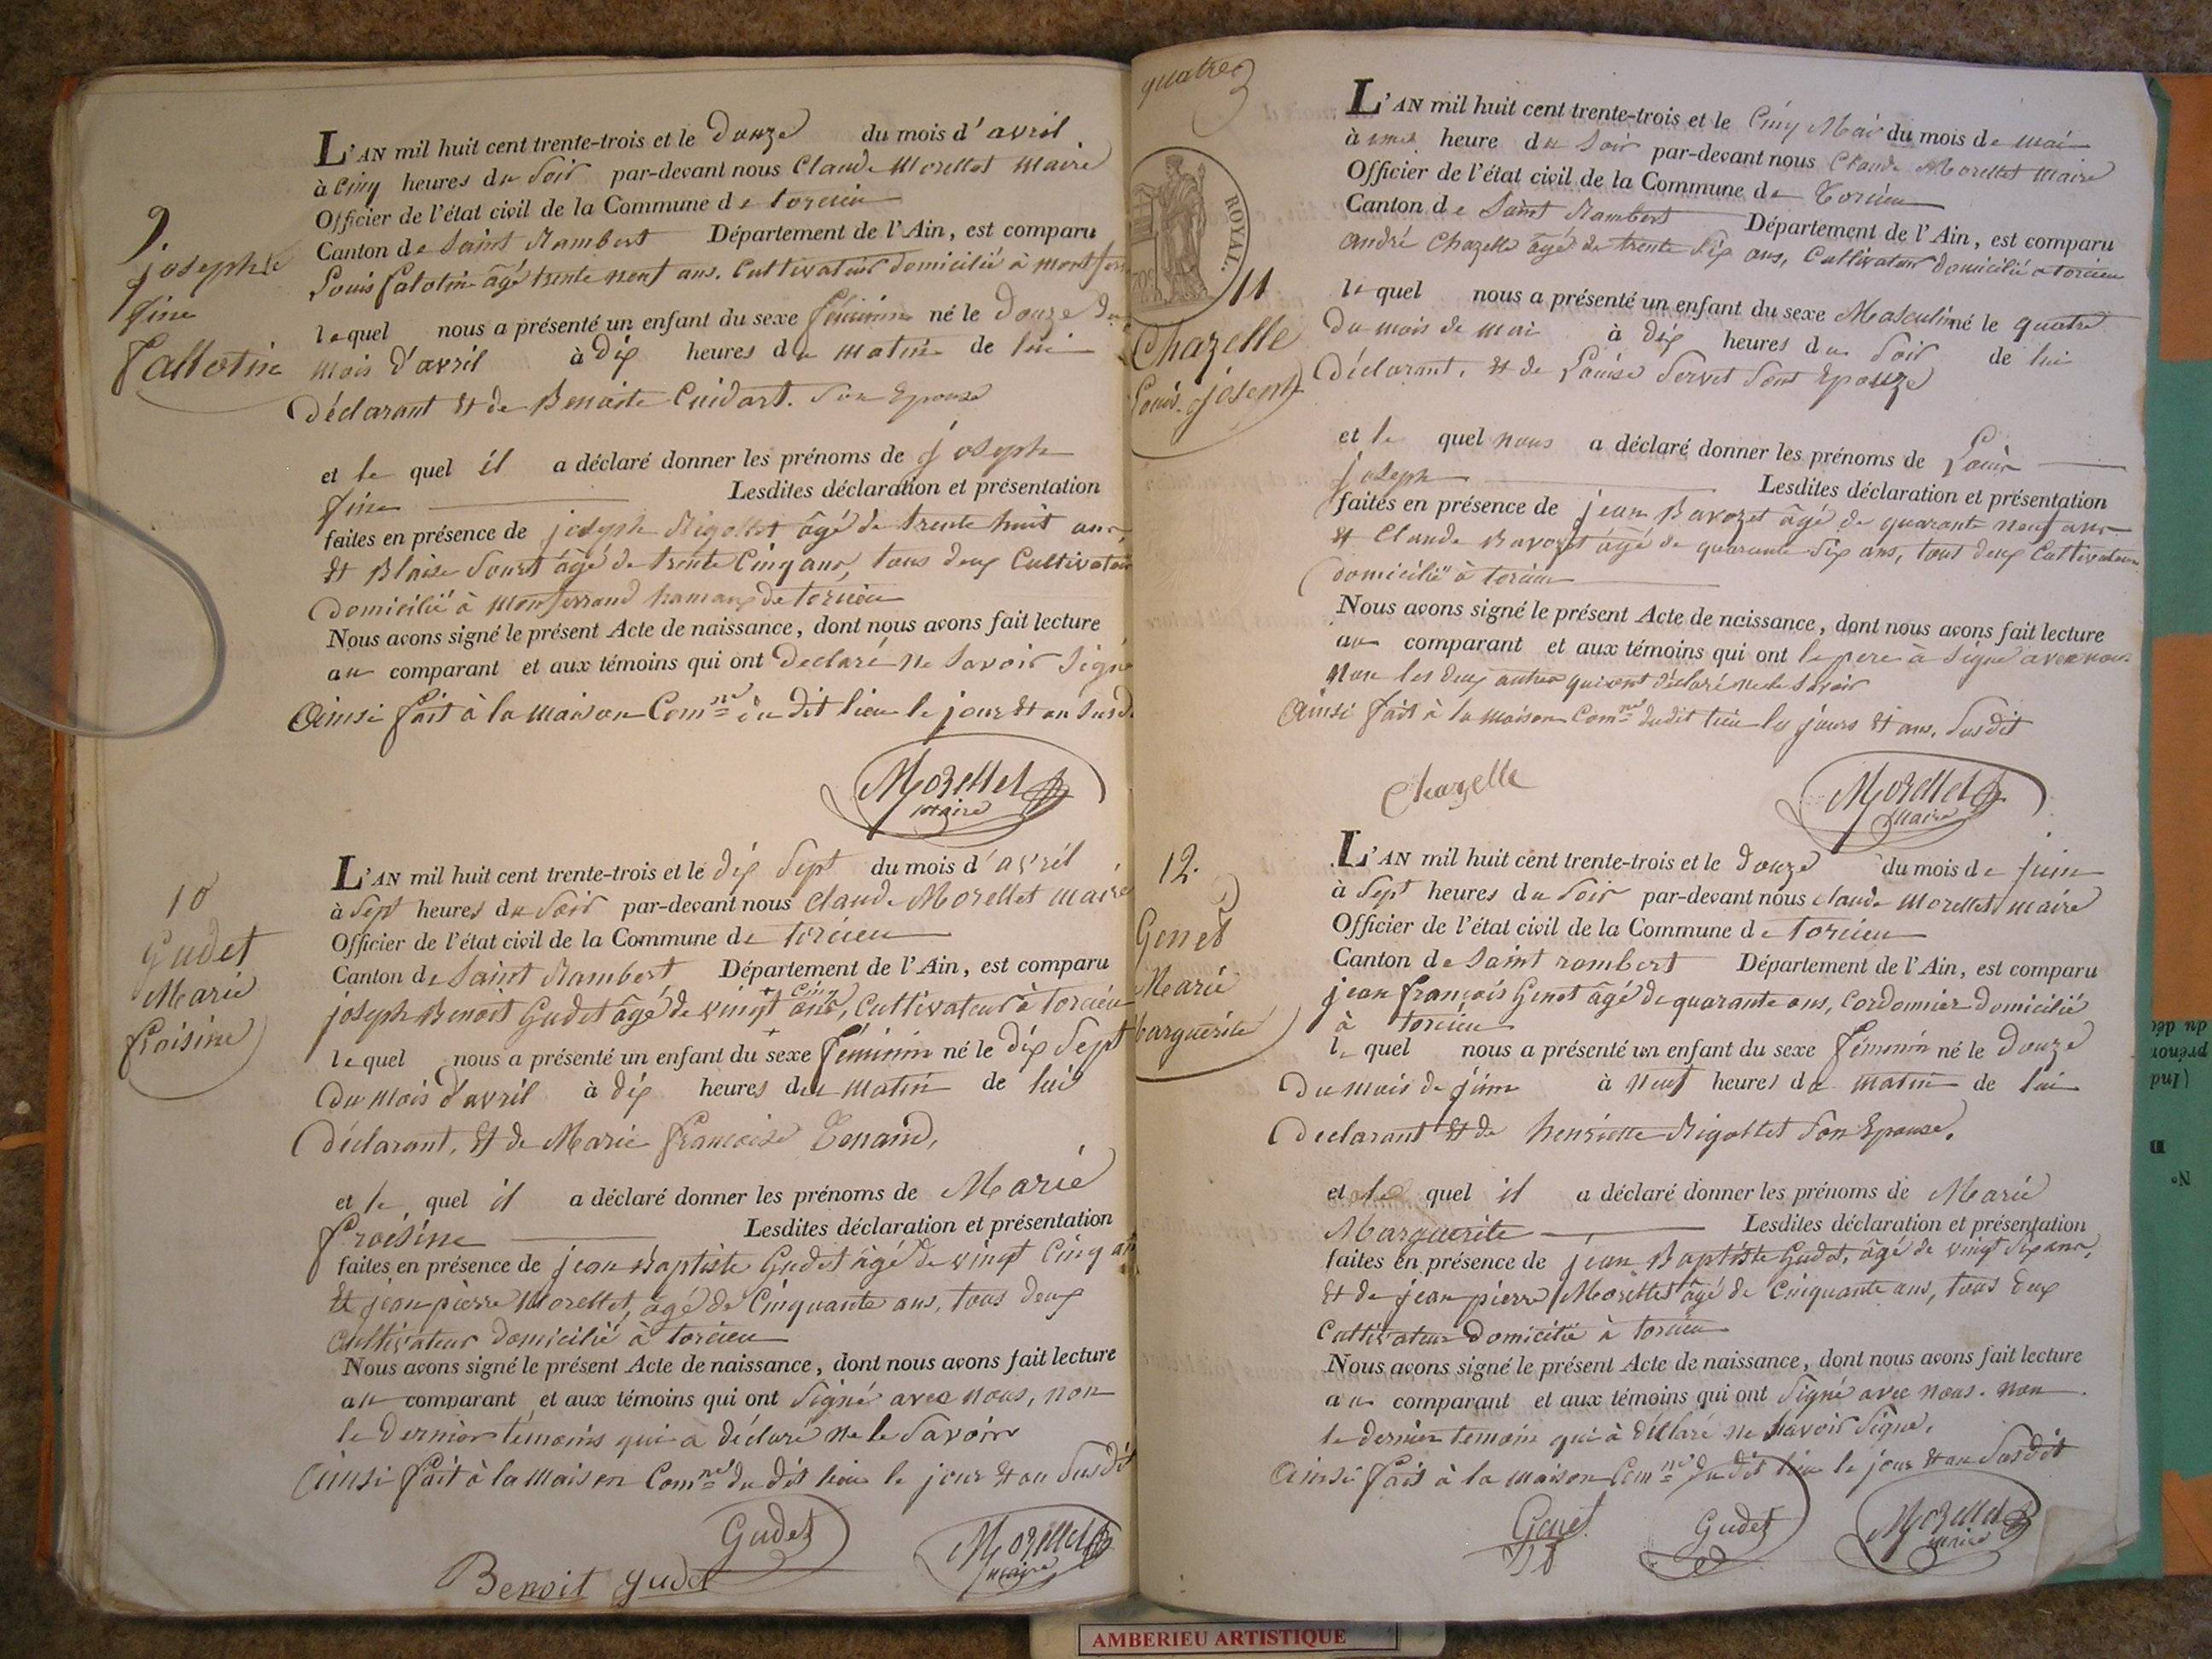 9.
josephe
fine
fallotin
L'AN mil huit cent trente-trois et le Douze du mois d'avril
à Cinq heures du Soir par-devant nous Claude Morellet Maire
Officier de l'état civil de la Commune de torcieu
Canton de Saint Rambert Département de l'Ain, est comparu
Louis falotin âgé trente neuf ans. Cultivateur domicilié à
lequel nous a présenté un enfant du sexe féminin né le Douze du
mois d'avril à dix heures du matin de lui
Déclarant et de Benoite Cuidart. Son Epouse
et le quel il a déclaré donner les prénoms de joseph
fine Lesdites déclaration et présentation
faites en présence de joseph Rigollet âgé de trente huit ans
et Blaise âgé de trente Cinq ans, tous deux Cultivateur
Domicilié à Monferrand hamaux de torcieu
Nous avons signé le présent Acte de naissance, dont nous avons fait lecture
au comparant et aux témoins qui ont Declaré ne Savoir Signé
Ainsi fait à la Maison Comne du dit lieu le jour et an Susd
Morellet
maire
10
Gudet
Marie
froisine
L'AN mil huit cent trente-trois et le dix Sept du mois d'avril
à Sept heures du Soir par-devant nous Claude Morellet Maire
Officier de l'état civil de la Commune de torcieu
Canton de Saint Rambert Département de l'Ain, est comparu
joseph Benoit Gudet âgé de vingt cinq ans, Cultivateur à torcieu
lequel nous a présenté un enfant du sexe féminin né le Dix Sept
Du Mois d'avril à dix heures du matin de lui
Déclarant, et de Marie françoise Tenand,
et le quel il a déclaré donner les prénoms de Marie
froisine Lesdites déclaration et présentation
faites en présence de jean Baptiste Gudet âgé de vingt Cinq an
et jean pierre Morellet, âgé de Cinquante ans, tous deux
Cultivateur domicilié à torcieu
Nous avons signé le présent Acte de naissance, dont nous avons fait lecture
au comparant et aux témoins qui ont Signé avec nous, non
le Dernier témoins qui à déclaré ne le Savoir
Ainsi fait à la Maison Comne du dit lieu le jour et an Susdit
Gudet
Benoit Gudet
Morellet
maire
quatre
ROYAL.
11
Chazelle
Louis joseph
L'AN mil huit cent trente-trois et le Cinq Mai du mois de mai
à une heure du Soir par-devant nous Claude Morellet Maire
Officier de l'état civil de la Commune de Torcieu
Canton de Saint Rambert Département de l'Ain, est comparu
andré Chazelle âgé de trente Six ans, Cultivateur domicilié a torcieu
le quel nous a présenté un enfant du sexe Masculin né le quatre
Du mois de mai à dix heures du Soir de lui
Déclarant, et de Louise Servet Sont Epouze
et le quel nous a déclaré donner les prénoms de Louis
joseph Lesdites déclaration et présentation
faites en présence de jean Bavozet âgé de quarante neuf ans
et Claude Bavozet âgé de quarante Six ans, tout deux Cultivateur
domicilié à torcieu
Nous avons signé le présent Acte de naissance, dont nous avons fait lecture
au comparant et aux témoins qui ont le pere à Signé avec nous
Non les deux autres qui ont déclaré ne le Savoir
Ainsi fait à la maison Comne dudit lieu les jours et ans. Susdit
Chazelle
Morellet
maire
12.
Genet
Marie
Marguerite
L'AN mil huit cent trente-trois et le Douze du mois de juin
à Sept heures du Soir par-devant nous claude Morellet maire
Officier de l'état civil de la Commune de torcieu
Canton de Saint rambert Département de l'Ain, est comparu
jean françois Genet âgé de quarante ans, Cordonnier domicilié
à torcieu
le quel nous a présenté un enfant du sexe féminin né le Douze
Du mois de juin à neuf heures du matin de lui
Declarant et de henriette Rigollet Son Epouse.
et le quel il a déclaré donner les prénoms de Marie
Marguerite Lesdites déclaration et présentation
faites en présence de jean Baptiste Gudet, âgé de vingt Six ans,
et de jean pierre Morellet âgé de Cinquante ans, tous deux
Cultivateur Domicilié à torcieu
Nous avons signé le présent Acte de naissance, dont nous avons fait lecture
au comparant et aux témoins qui ont Signé avec nous. non
le dernier temoin qui à déclaré ne Savoir Signe.
Ainsi fait à la maison Comne du dit lieu le jour et an Susdit
Genet
Gudet
Morellet
maire
AMBERIEU ARTISTIQUE